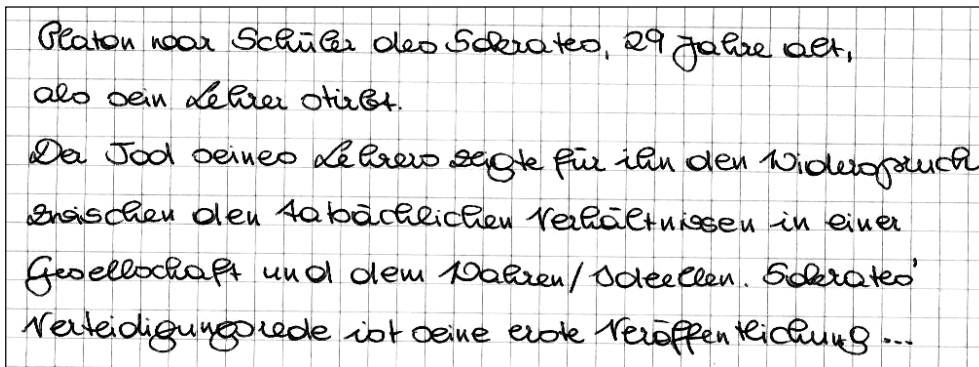 Platon war Schüler des Sokrates, 29 Jahre alt,
als sein Lehrer stirbt.
Der Tod seines Lehrers zeigte für ihn den Widerspruch
zwischen den tatsächlichen Verhältnissen in einer
Gesellschaft und dem Wahren/Ideellen. Sokrates'
Verteidigungsrede ist seine erste Veröffentlichung...